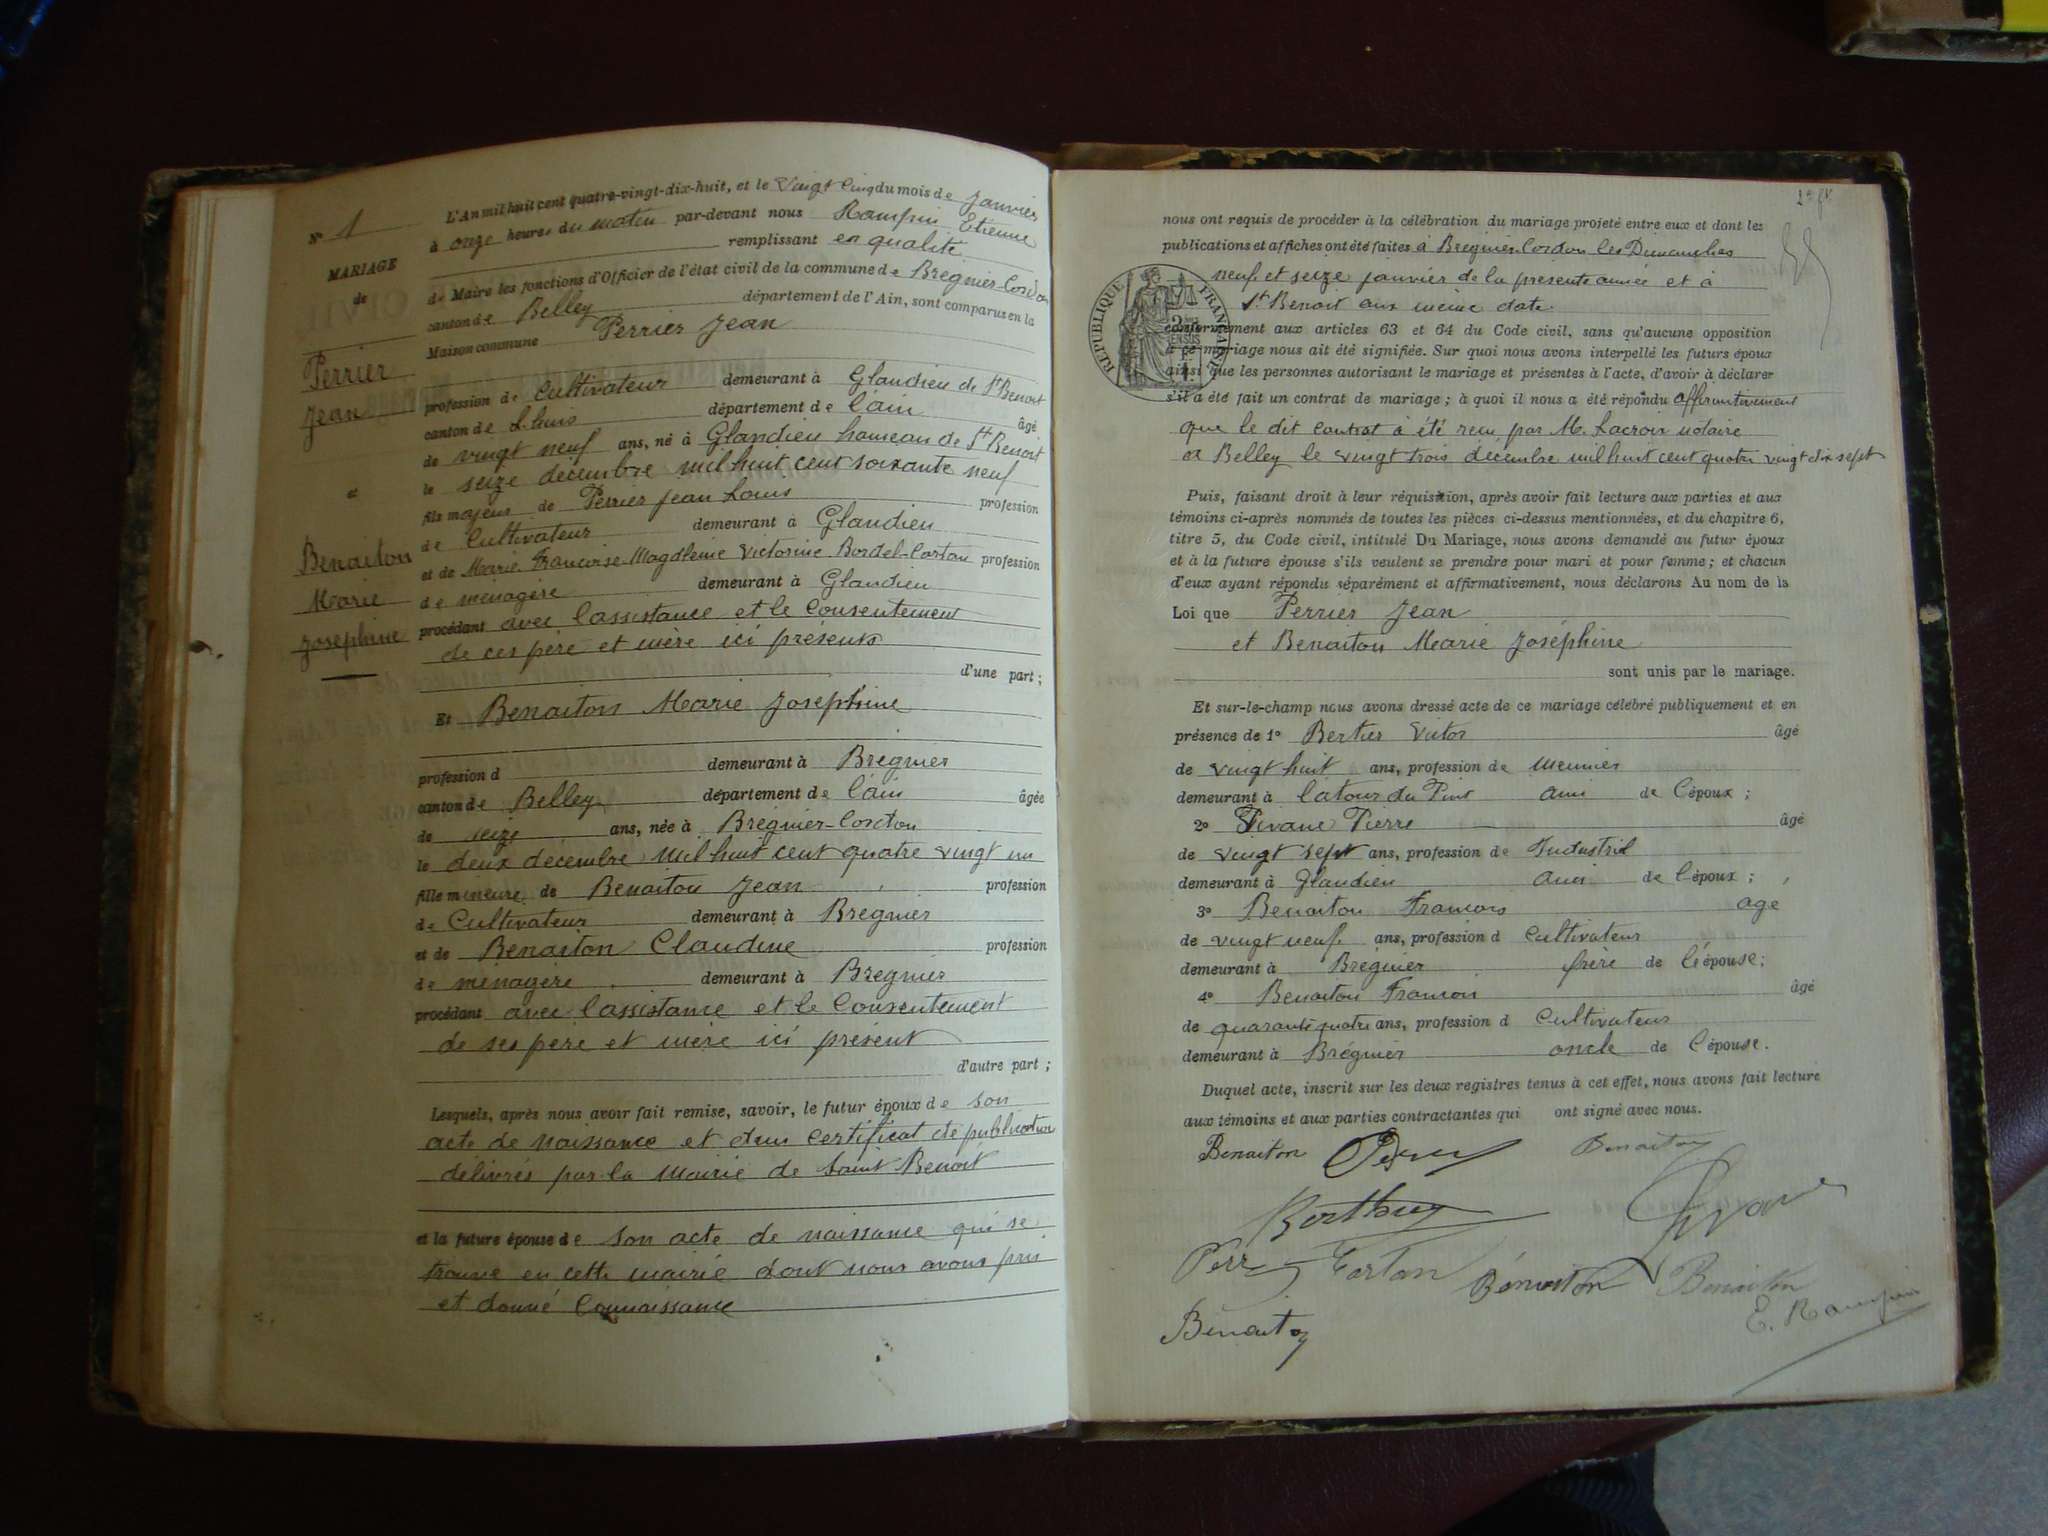 L'An mil huit cent quatre-vingt-dix-huit, et le vingt cinq du mois de janvier
N° 1
à onze heures du matin par-devant nous Rampin Etienne
remplissant en qualité
MARIAGE
de
de Maire les fonctions d'Officier de l'état civil de la commune de Brégnier-Cordon
canton de Belley département de l'Ain, sont comparus en la
Maison commune Perrier Jean
Perrier
Jean
et
Benaiton
Marie
Joséphine
profession de Cultivateur demeurant à Glandieu de St Benoit
canton de Lhuis département de l'ain âgé
de vingt neuf ans, né à Glandieu hameau de St Benoit
le seize décembre mil huit cent soixante neuf
fils majeur de Perrier Jean Louis profession
de Cultivateur demeurant à Glandieu
et de Marie Francoise Magdleine Victorine Bordel-Cortan profession
de ménagère demeurant à Glandieu
procédant avec l'assistance et le Consentement
de ces père et mère ici présents
d'une part ;
Et Benaiton Marie Joséphine
profession d demeurant à Brégnier
canton de Belley département de l'ain âgée
de seize ans, née à Brégnier-Cordon
le deux décembre mil huit cent quatre vingt un
fille mineure de Benaiton Jean profession
de Cultivateur demeurant à Bregnier
et de Benaiton Claudine profession
de ménagère demeurant à Bregnier
procédant avec l'assistance et le Consentement
de ses père et mère ici présent
d'autre part ;
Lesquels, après nous avoir fait remise, savoir, le futur époux de son
acte de naissance et d'un certificat de publication
délivrés par la Mairie de Saint Benoit
et la future épouse de son acte de naissance qui se
trouve en cette mairie dont nous avons pris
et donné Connaissance
nous ont requis de procéder à la célébration du mariage projeté entre eux et dont les
publications et affiches ont été faites à Bregnier-Cordon les Dimanches
neuf et seize janvier de la présente année et à
St Benoit aux meme date
REPUBLIQUE FRANÇAISE
conformément aux articles 63 et 64 du Code civil, sans qu'aucune opposition
à ce mariage nous ait été signifiée. Sur quoi nous avons interpellé les futurs époux
ainsi que les personnes autorisant le mariage et présentes à l'acte, d'avoir à déclarer
s'il a été fait un contrat de mariage ; à quoi il nous a été répondu affirmativement
que le dit contrat à été reçu par M. Lacroix notaire
a Belley le vingt trois décembre mil huit cent quatre vingt dix sept
Puis, faisant droit à leur réquisition, après avoir fait lecture aux parties et aux
témoins ci-après nommés de toutes les pièces ci-dessus mentionnées, et du chapitre 6,
titre 5, du Code civil, intitulé Du Mariage, nous avons demandé au futur époux
et à la future épouse s'ils veulent se prendre pour mari et pour femme ; et chacun
d'eux ayant répondu séparément et affirmativement, nous déclarons Au nom de la
Loi que Perrier Jean
et Benaiton Marie Joséphine
sont unis par le mariage.
Et sur-le-champ nous avons dressé acte de ce mariage célébré publiquement et en
présence de 1° Bertier Victor âgé
de vingt huit ans, profession de meunier
demeurant à latour du Pin ami de l'époux ;
2° Pivane Pierre âgé
de vingt sept ans, profession de Industriel
demeurant à Glandieu ami de l'époux ;
3° Benaiton Francois age
de vingt neuf ans, profession d Cultivateur
demeurant à Brégnier frère de l'épouse ;
4° Benaiton Francois âgé
de quarante quatre ans, profession d Cultivateur
demeurant à Brégnier oncle de l'épouse.
Duquel acte, inscrit sur les deux registres tenus à cet effet, nous avons fait lecture
aux témoins et aux parties contractantes qui ont signé avec nous.
Benaiton Perrier Benaiton
Berthier Pivane
Cortan Bénaiton Benaiton
Bénaiton E. Rampin